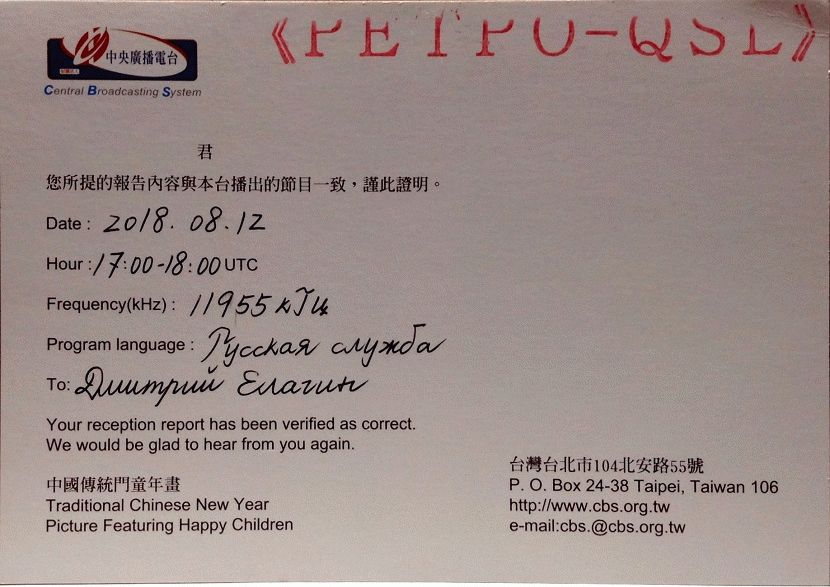 《РЕТРО-QSL》
中央廣播電台
財團法人
Central Broadcasting System
君
您所提的報告內容與本台播出的節目一致，謹此證明。
Date : 2018. 08. 12
Hour : 17:00-18:00 UTC
Frequency(kHz) : 11955 кГц
Program language : Русская служба
To: Дмитрий Елагин
Your reception report has been verified as correct.
We would be glad to hear from you again.
中國傳統門童年畫
Traditional Chinese New Year
Picture Featuring Happy Children
台灣台北市104北安路55號
P. O. Box 24-38 Taipei, Taiwan 106
http://www.cbs.org.tw
e-mail:cbs.@cbs.org.tw